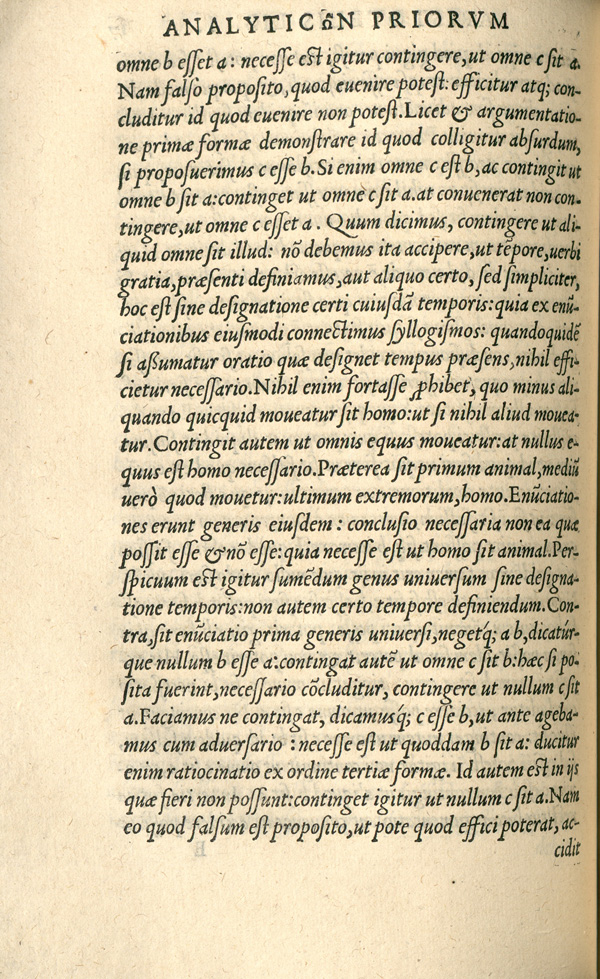 ANALYTICῶN PRIORVM
omne b esset a: necesse est igitur contingere, ut omne c sit a.
Nam falso proposito, quod euenire potest: efficitur atq; con-
cluditur id quod euenire non potest. Licet & argumentatio-
ne primæ formæ demonstrare id quod colligitur absurdum,
si proposuerimus c esse b. Si enim omne c est b, ac contingit ut
omne b sit a: continget ut omne c sit a. at conuenerat non con-
tingere, ut omne c esset a. Quum dicimus, contingere ut ali-
quid omne sit illud: nō debemus ita accipere, ut tēpore, uerbi
gratia, præsenti definiamus, aut aliquo certo, sed simpliciter,
hoc est sine designatione certi cuiusdā temporis: quia ex enū-
ciationibus eiusmodi connectimus syllogismos: quandoquidē
si aßumatur oratio quæ designet tempus præsens, nihil effi-
cietur necessario. Nihil enim fortasse ꝓhibet, quo minus ali-
quando quicquid moueatur sit homo: ut si nihil aliud mouea-
tur. Contingit autem ut omnis equus moueatur: at nullus e-
quus est homo necessario. Præterea sit primum animal, mediū
uerò quod mouetur: ultimum extremorum, homo. Enūciatio-
nes erunt generis eiusdem: conclusio necessaria non ea quæ
possit esse & nō esse: quia necesse est ut homo sit animal. Per-
spicuum est igitur sumēdum genus uniuersum sine designa-
tione temporis: non autem certo tempore definiendum. Con-
tra, sit enūciatio prima generis uniuersi, negetq́; a b, dicatúr-
que nullum b esse a: contingat autē ut omne c sit b: hæc si po-
sita fuerint, necessario cōcluditur, contingere ut nullum c sit
a. Faciamus ne contingat, dicamusq́; c esse b, ut ante ageba-
mus cum aduersario: necesse est ut quoddam b sit a: ducitur
enim ratiocinatio ex ordine tertiæ formæ. Id autem est in ijs
quæ fieri non possunt: continget igitur ut nullum c sit a. Nam
eo quod falsum est proposito, ut pote quod effici poterat, ac-
cidit